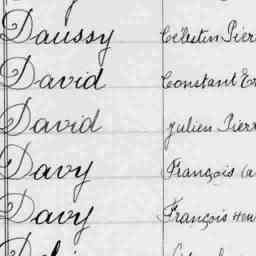 Daussy Célestin
David Constant
David Julien
Davy François
Davy François Henri